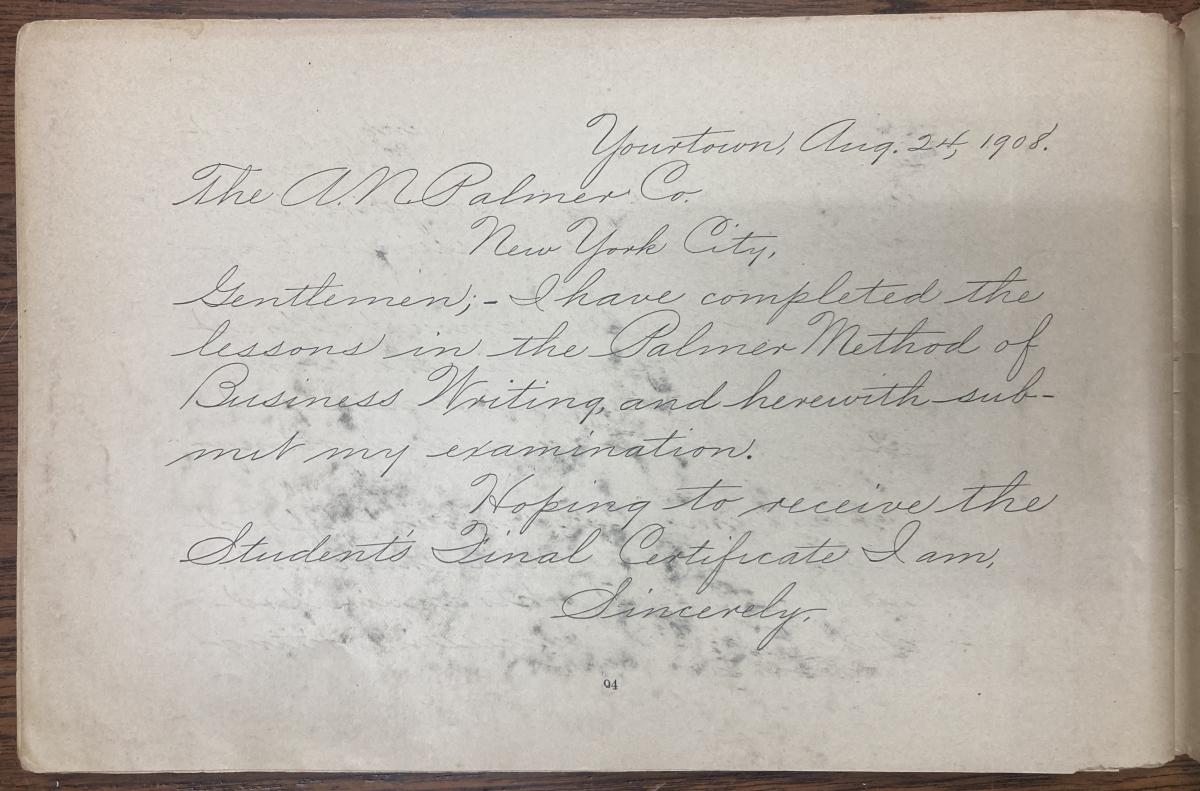 Yourtown, Aug. 24, 1908.
The A. N. Palmer Co.
New York City,
Gentlemen;- I have completed the
lessons in the Palmer Method of
Business Writing, and herewith sub-
mit my examination.
Hoping to receive the
Student's Final Certificate I am,
Sincerely,
94